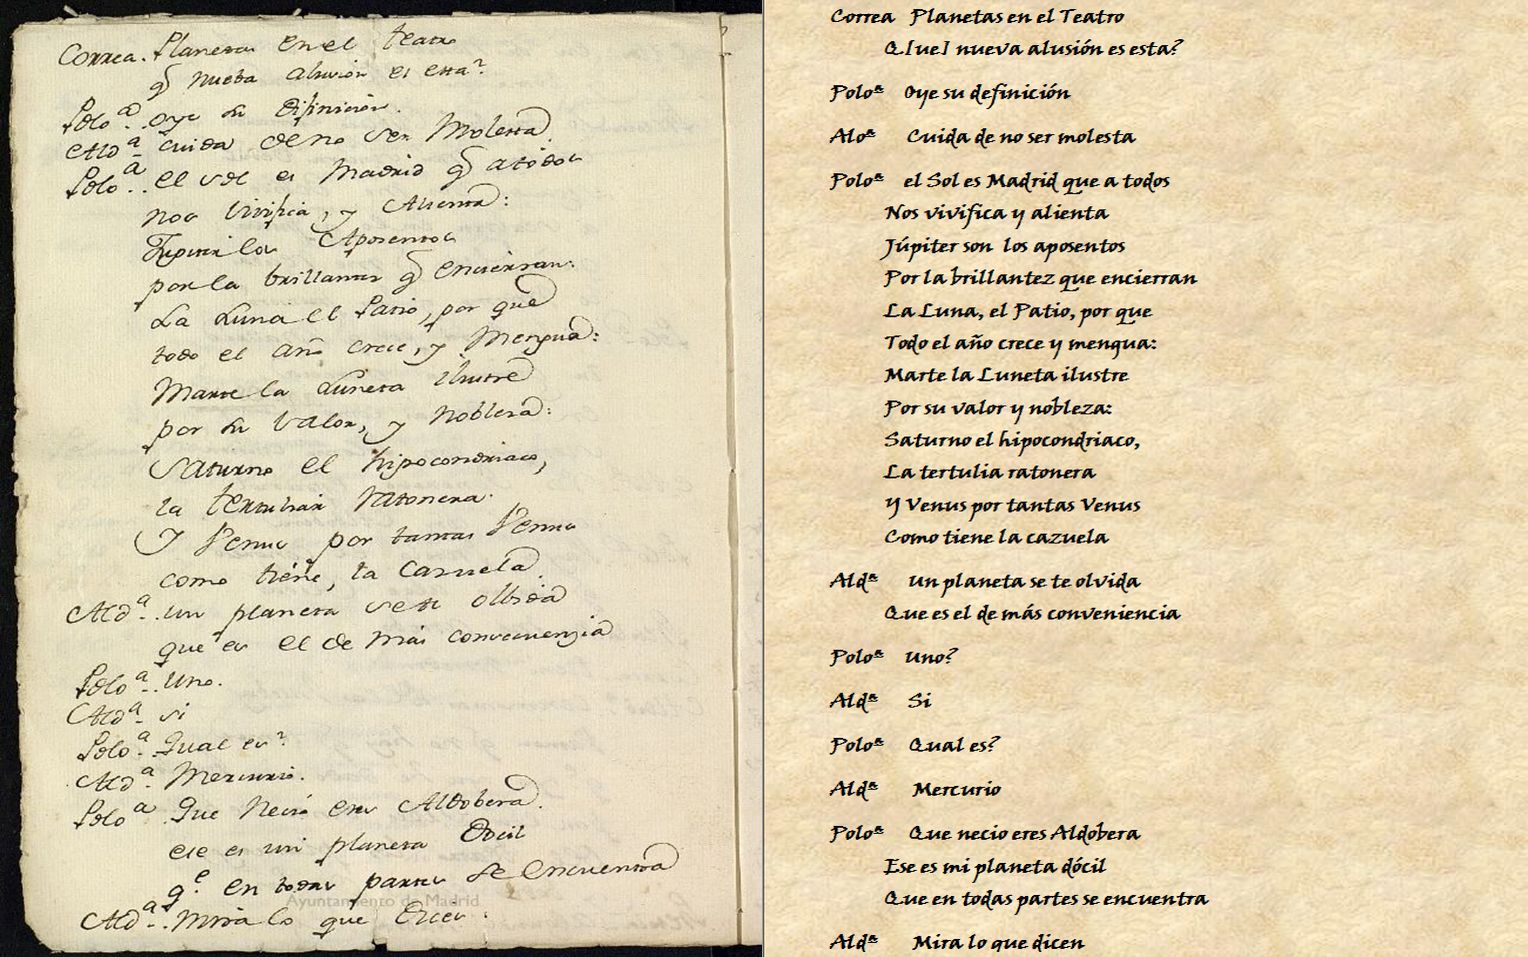 Correa. Planetas en el teatro
q̃ nueba alusion es esta?
Poloª. oye su difinicion.
Aldª. cuida de no ser Molesta.
Poloª. el sol es Madrid q̃ a tódos
nos vivifica, y Alienta:
Jupiter los Aposentos
por la brillantez q̃ encierran:
La Luna el Patio, por que
todo el año crece, y Mengua:
Marte la Luneta ilustre
por su valor, y nobleza:
Saturno el hipocondriaco,
la tertulia ratonera.
Y Venus por tantas Venus
como tiene, la Cazuela.
Aldª. un planeta se te olbida
que es el de mas combenienzia
Poloª. Uno.
Aldª. si
Poloª. Qual es?
Aldª. Mercurio.
Poloª. Que Necio eres Aldobera.
ese es un planeta Docil
q.e en todas partes se encuentra
Ayuntamiento de Madrid
Aldª. Mira lo que dicen.
Correa Planetas en el Teatro
Q[ue] nueva alusión es esta?
Poloª Oye su definición
Aloª Cuida de no ser molesta
Poloª el Sol es Madrid que a todos
Nos vivifica y alienta
Júpiter son los aposentos
Por la brillantez que encierran
La Luna, el Patio, por que
Todo el año crece y mengua:
Marte la Luneta ilustre
Por su valor y nobleza:
Saturno el hipocondriaco,
La tertulia ratonera
Y Venus por tantas Venus
Como tiene la cazuela
Aldª Un planeta se te olvida
Que es el de más conveniencia
Poloª Uno?
Aldª Si
Poloª Qual es?
Aldª Mercurio
Poloª Que necio eres Aldobera
Ese es mi planeta dócil
Que en todas partes se encuentra
Aldª Mira lo que dicen